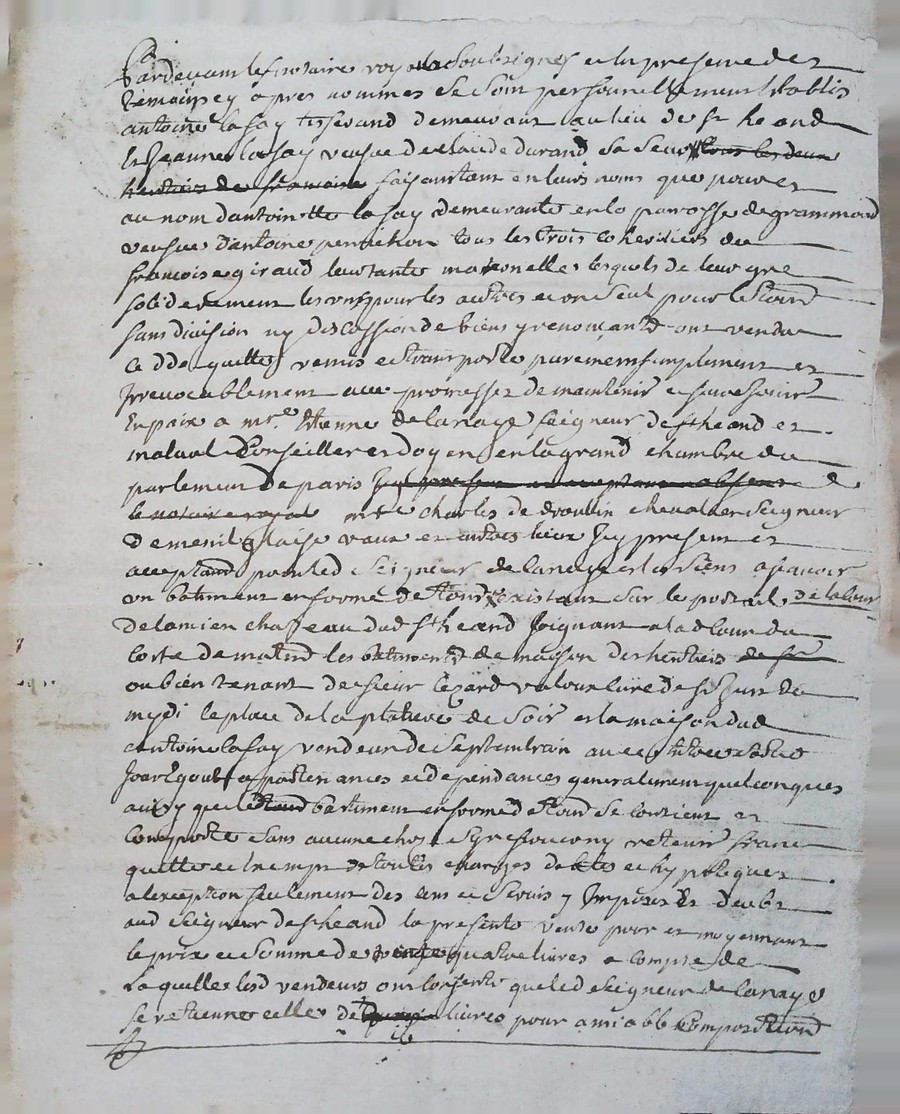 Pardevant les notaire royal soubsignes et en presence des
temoins cy apres nommes se sont personnellement establis
antoine lafay tisserand demeurant au lieu de st heand
et Jeanne lafay veufve de claude durand sa seur tous les deux
heritiers de francoise faisant tant en leurs noms que pour et
au nom dantoinette lafay demeurante en la paroisse de grammond
veufve dantoine perrichon tous les trois coheritiers de
francoise giraud leur tante maternelle lesquels de leur gre
solidairement les uns pour les autres et un seul pour le tout
sans division ny discussion de biens y renoncants ont vendu
cedde quitte remis et transporte purement simplement et
Irrevocablement avec promesses de maintenir et faire jouir
En paix a mre Etienne delanaye seigneur de st heand et
malval Conseiller et doyen en la grand chambre du
parlement de paris Icy present et acceptant absent de
le notaire royal mre charles de drouin chevalier seigneur
de menil glaise vaux et autres lieux Icy present et
acceptant pour led seigneur delanaye et les siens a scavoir
un batiment en forme de tour existant sur le portail de la cour
de lancien chateau dud st heand Joignant a lad cour du
coste de matin les batiments de maison des heritiers de sr
ou bien tenant de sieur
mydi le place de la platiere de soir et la maison dud
antoine lafay vendeur de septentrion avec entree sortie
Jour Egout appartenances et dependances generalement quelconques
ainsy que led batiment en forme de tour se contient et
comporte sans aucune chose sy reserver ny retenir franc
quitte et exempt de toutes charges debtes et hypoteques
a lexception seulement des cens et servis y Imposes et deubs
aud seigneur de st heand la presente vente pour et moyennant
le prix et somme de quatre livres a compte de
laquelle lesd vendeurs ont consenty que led seigneur delanaye
se retienne celle de livres pour amiable composition